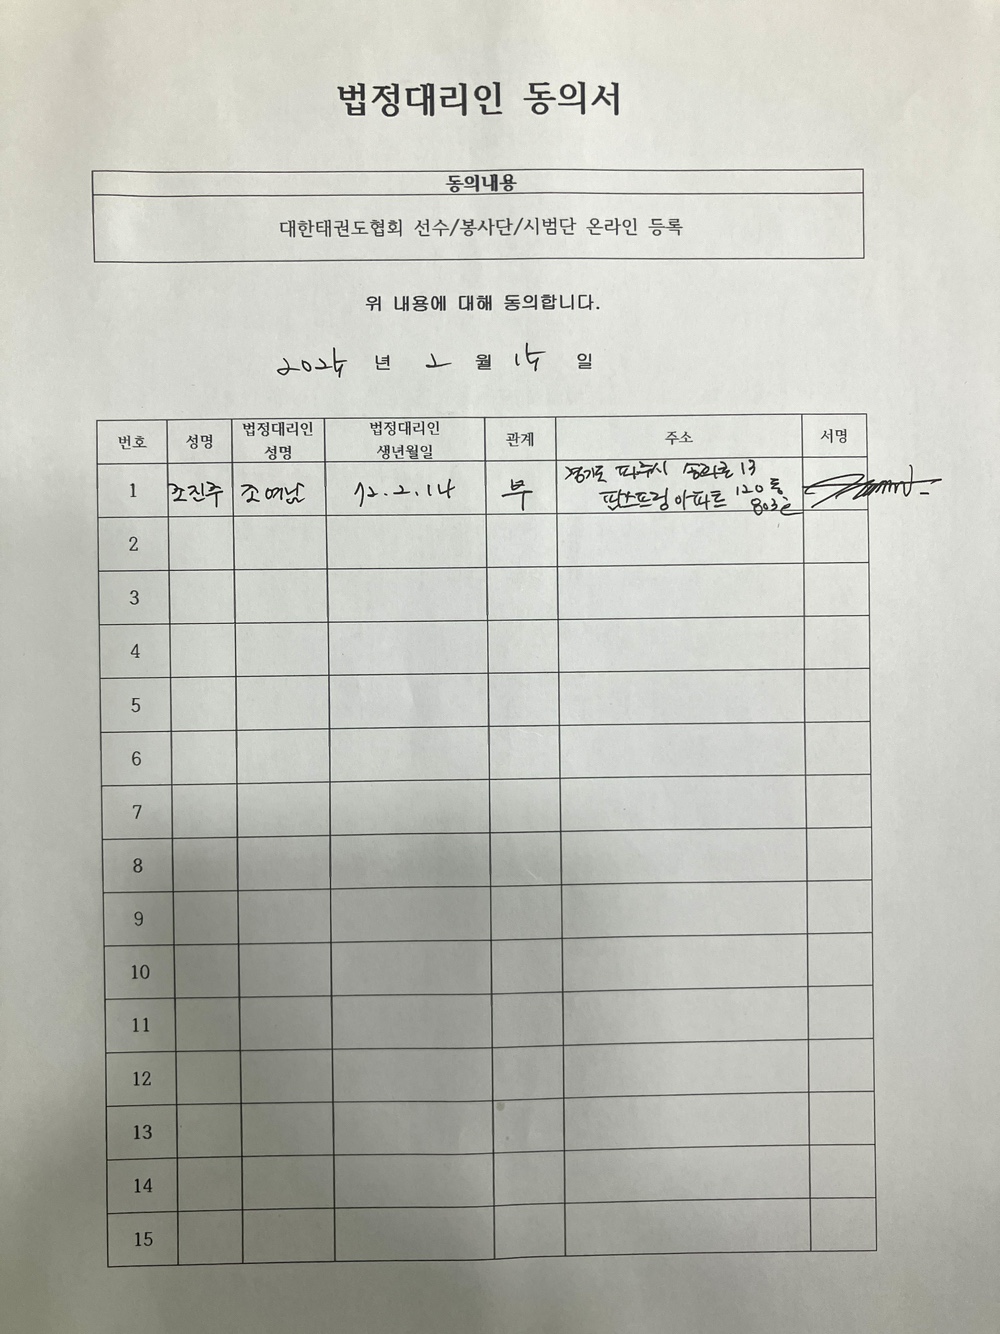 법정대리인 동의서
동의내용
대한태권도협회 선수/봉사단/시범단 온라인 등록
위 내용에 대해 동의합니다.
2024 년 2 월 14 일
번호 성명 법정대리인 성명 법정대리인 생년월일 관계 주소 서명
1 조진주 조여남 72.2.14 부 경기도 파주시 송화로 13
팜스프링 아파트 120동 803호
2
3
4
5
6
7
8
9
10
11
12
13
14
15